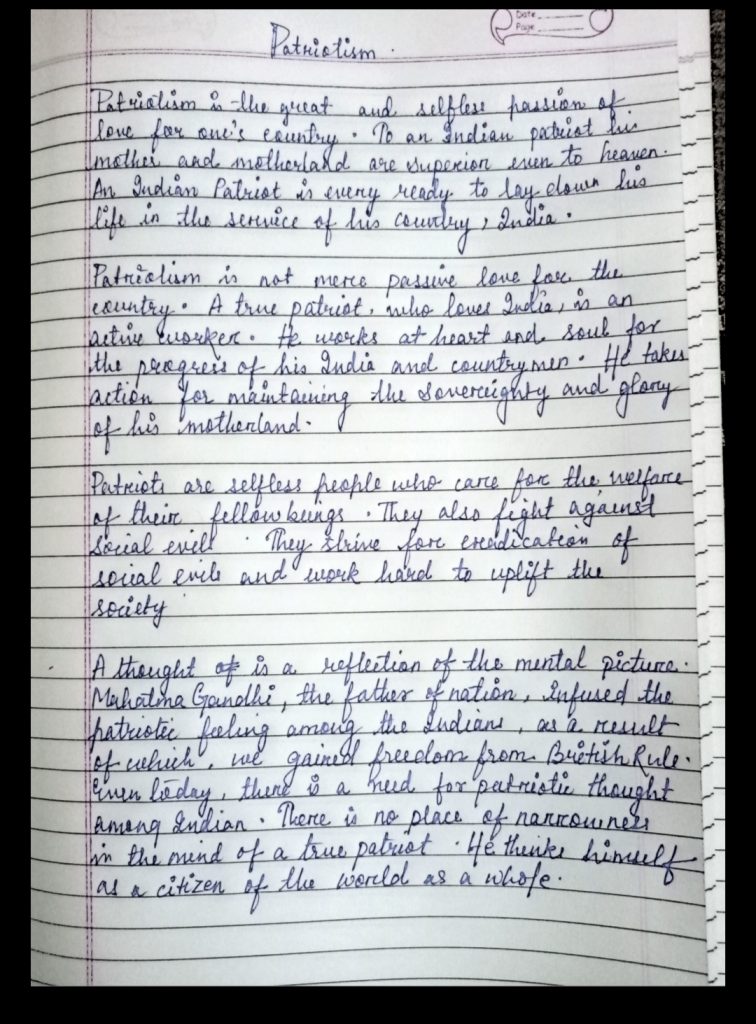 Date
Page
Patriotism .
Patriotism is the great and selfless passion of
love for one's country . To an Indian patriot his
mother and motherland are superior even to heaven.
An Indian Patriot is every ready to lay down his
life in the service of his country, India .
Patriotism is not mere passive love for the
country . A true patriot, who loves India, is an
active worker . He works at heart and soul for
the progress of his India and countrymen . He takes
action for maintaining the sovereighty and glory
of his motherland.
Patriots are selfless people who care for the welfare
of their fellow beings . They also fight against
social evils . They strive for eradication of
social evils and work hard to uplift the
society
A thought of is a reflection of the mental picture .
Mahatma Gandhi, the father of nation, infused the
patriotic feeling among the Indians, as a result
of which, we gained freedom from British Rule .
Even today, there is a need for patriotic thought
among Indian . There is no place of narrowness
in the mind of a true patriot . He thinks himself
as a citizen of the world as a whole .